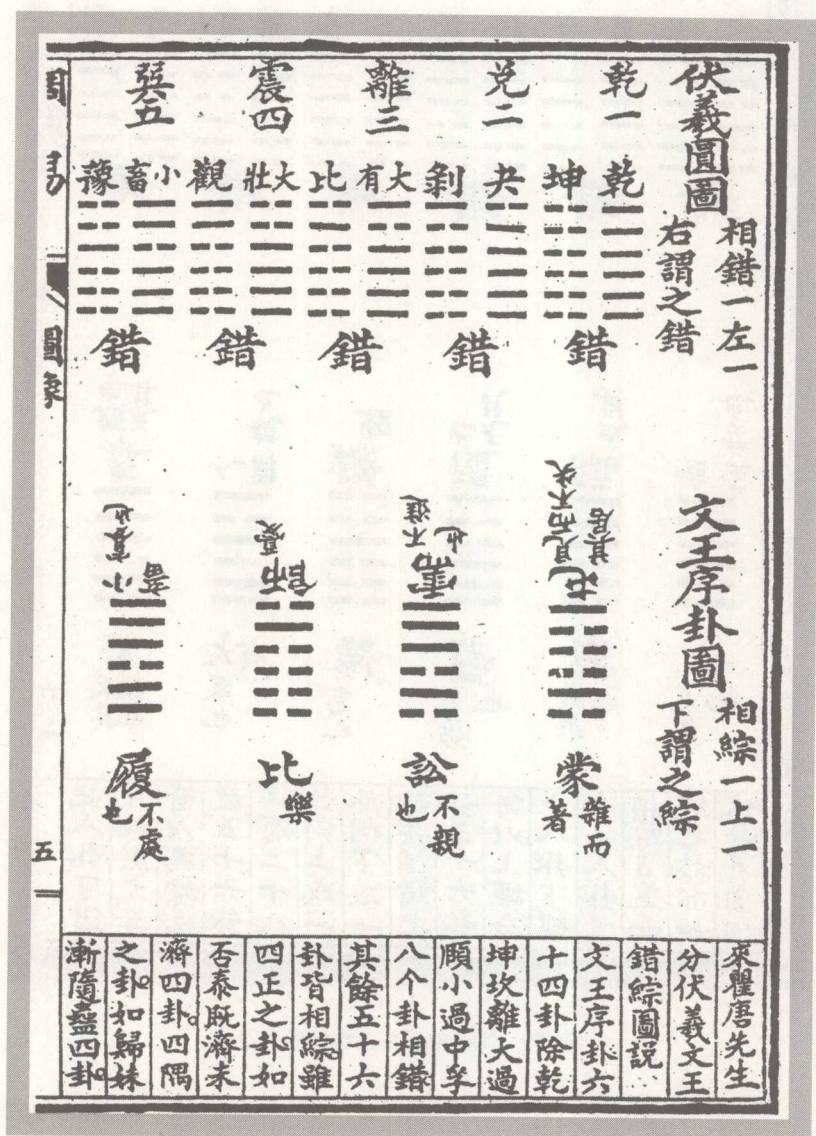 伏羲圓圖
相錯一左一
右謂之錯
乾一
乾
坤
錯
兌二
夬
剝
錯
離三
大有
比
錯
震四
大壯
觀
錯
巽五
小畜
豫
錯
文王序卦圖
相綜一上一
下謂之綜
屯見而不失
其居
蒙雜而
著
需不進
也
訟不親
也
師憂
比樂
小畜寡也
履不處
也
來瞿唐先生
分伏羲文王
錯綜圖説
文王序卦六
十四卦除乾
坤坎離大過
頤小過中孚
八个卦相錯
其餘五十六
卦皆相綜雖
四正之卦如
否泰既濟未
濟四卦四隅
之卦如歸妹
漸隨蠱四卦
周易
圖象
五